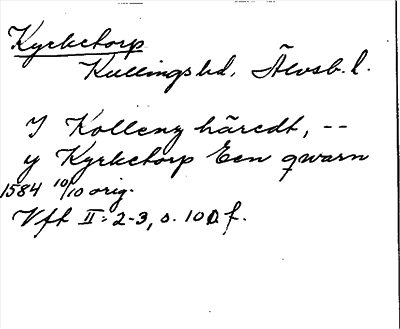 Kyrketorp
Kullings hd, Älvsb. l.
I Kolleng häredt, --
y Kyrketorp Een qwarn
1584 10/10 orig.
Vfh II: 2-3, s. 100 f.